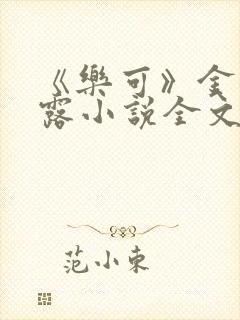 《樂可》金
露小說全文
范小東